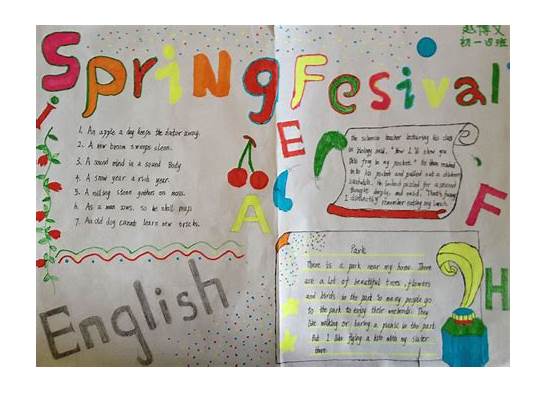 Spring Fesival
初一四班
1. An apple a day keeps the doctor away.
2. A new broom sweeps clean.
3. A sound mind in a sound body
4. A snow year a rich year.
5. A rolling stone gathers no moss.
6. As a man sows, so he shall reap
7. An old dog cannot learn new tricks.
English
E
A
F
H
The science teacher lecturing his class
in biology said, " Now I'll show you
this frog in my pocket." He then reached
into his pocket and pulled out a chicken
sandwich. He looked puzzled for a second
thought deeply, and said, "That's funny
I distinctly remember eating my lunch.
Park
There is a park near my home. There
are a lot of beautiful trees, flowers
and birds in the park so many people go
to the park to enjoy their weekends. They
like walking or having a picnic in the park
But I like flying a kite with my sister
there.